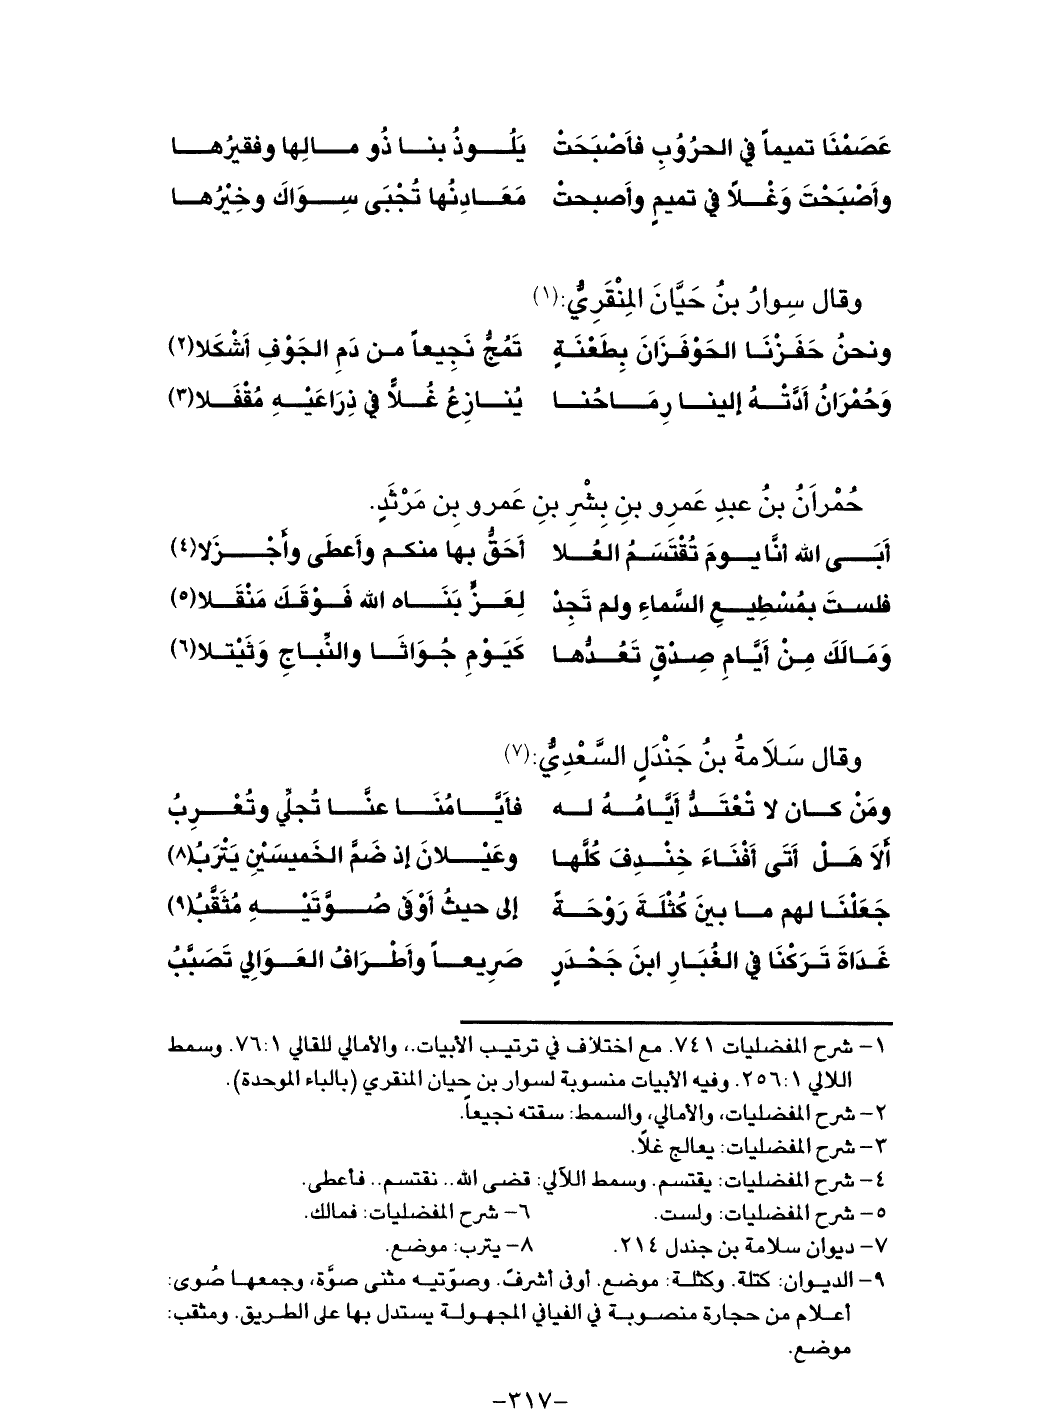 عَصَمْنَا تميماً في الحرُوُبِ فأَصْبَحَتْ يَلُوذُ بنا ذُو مالِها وفقيرُها
وأَصْبَحْتَ وَغْلاً في تميمٍ وأَصبحتْ مَعَادِنُها تُجْبَى سِوَاكَ وخِيْرُها
وقال سِوارُ بنُ حَيَّانَ المِنْقَرِيُّ:(١)
ونحنُ حَفَزْنَا الحَوْفَزَانَ بِطَعْنَةٍ تَمُجُّ نَجِيعاً من دَمِ الجَوْفِ أَشْكَلا(٢)
وَحُمْرَانُ أَدَّتْهُ إلينا رِمَاحُنا يُنازِعُ غُلاًّ في ذِرَاعَيْهِ مُقْفَلا(٣)
حُمْرانُ بنُ عبدِ عَمرِو بنِ بِشْرِ بنِ عَمرو بن مَرْثَدٍ.
أَبَى الله أنَّا يومَ تُقْتَسَمُ العُلا أَحَقُّ بها منكم وأَعطَى وأَجْزَلا(٤)
فلستَ بمُسْطِيعِ السَّماءِ ولم تَجِدْ لِعَزٍّ بَنَاه الله فَوْقَكَ مَنْقَلا(٥)
وَمَالَكَ مِنْ أَيَّامِ صِدْقٍ تَعُدُّها كَيَوْمِ جُوَاثَا والنِّباجِ وَثَيْتلا(٦)
وقال سَلَامةُ بنُ جَنْدَلٍ السَّعْدِيُّ:(٧)
ومَنْ كان لا تْعْتَدُّ أَيَّامُهُ له فأيَّامُنَا عنَّا تُجلِّي وتُعْرِبُ
أَلَا هَلْ أَتَى أَفْنَاءَ خِنْدِفَ كُلَّها وعَيْلانَ إذ ضَمَّ الخَميسَيْنِ يَتْرَبُ(٨)
جَعَلْنَا لهم ما بينَ كُثْلَةَ رَوْحَةً إلى حيثُ أَوْفَى صُوَّتَيْهِ مُثَقَّبُ(٩)
غَدَاةَ تَرَكْنَا في الغُبَارِ ابنَ جَحْدَرٍ صَرِيعاً وأَطْرَافُ العَوَالِي تَصَبَّبُ
١- شرح المفضليات ٧٤١. مع اختلاف في ترتيب الأبيات.، والأمالي للقالي ٧٦:١. وسمط
اللالي ٢٥٦:١. وفيه الأبيات منسوبة لسوار بن حيان المنقري (بالباء الموحدة).
٢- شرح المفضليات، والأمالي، والسمط: سقته نجيعاً.
٣- شرح المفضليات: يعالج غلاً.
٤- شرح المفضليات: يقتسم. وسمط اللآلي: قضى الله.. نقتسم.. فأعطى.
٥- شرح المفضليات: ولست. ٦- شرح المفضليات: فمالك.
٧- ديوان سلامة بن جندل ٢١٤. ٨- يترب: موضع.
٩- الديوان: كتلة. وكثلة: موضع. أوفى أشرف. وصوّتيه مثنى صوَّة، وجمعها صُوى:
أعلام من حجارة منصوبة في الفيافي المجهولة يستدل بها على الطريق. ومثقب:
موضع.
-٣١٧-